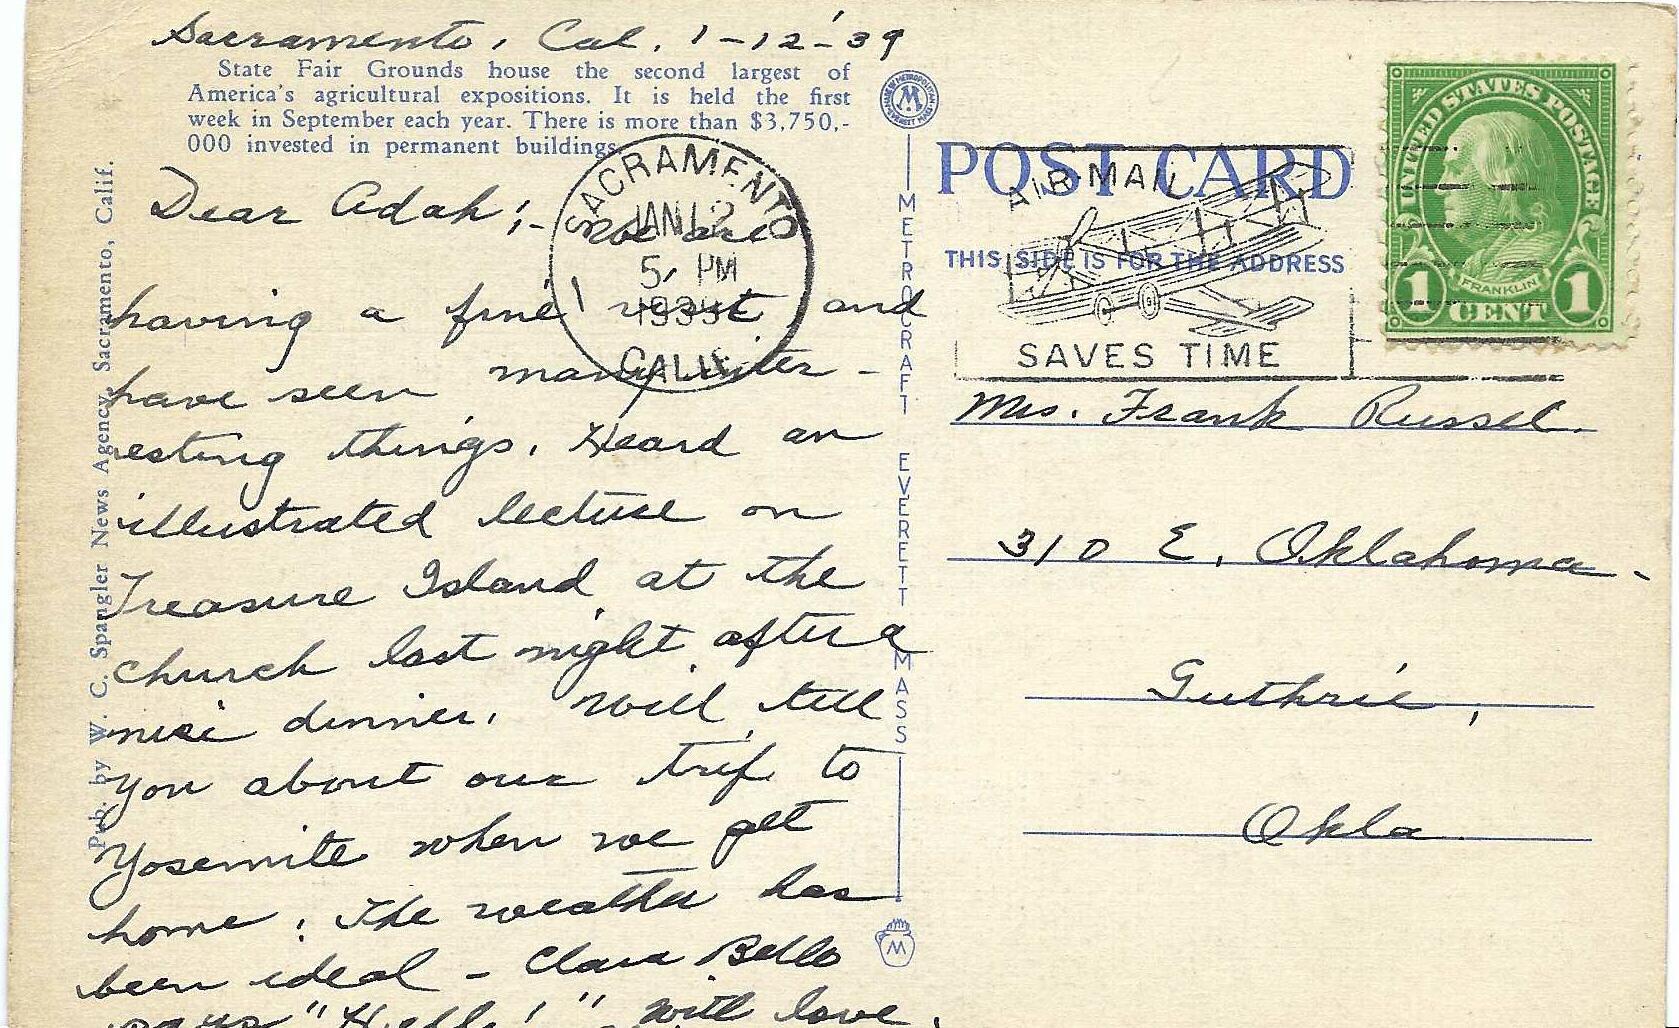 Sacramento, Cal. 1-12-'39
State Fair Grounds house the second largest of
America's agricultural expositions. It is held the first
week in September each year. There is more than $3,750,-
000 invested in permanent buildings.
Dear Adah:- We are
having a fine visit and
have seen many inter-
esting things. Heard an
illustrated lecture on
Treasure Island at the
church last night after a
nice dinner. Will tell
you about our trip to
Yosemite when we get
home. The weather has
been ideal - Clara Belle
says "Hello!" With love.
Pub. by W. C. Spangler News Agency, Sacramento, Calif.
SACRAMENTO
JAN 12
5 PM
1939
CALIF.
MADE BY METROPOLITAN
M
EVERETT MASS
METROCRAFT EVERETT MASS
M
POST CARD
THIS SIDE IS FOR THE ADDRESS
AIR MAIL
SAVES TIME
UNITED STATES POSTAGE
FRANKLIN
1 CENT 1
Mrs. Frank Russel.
310 E. Oklahoma.
Guthrie,
Okla